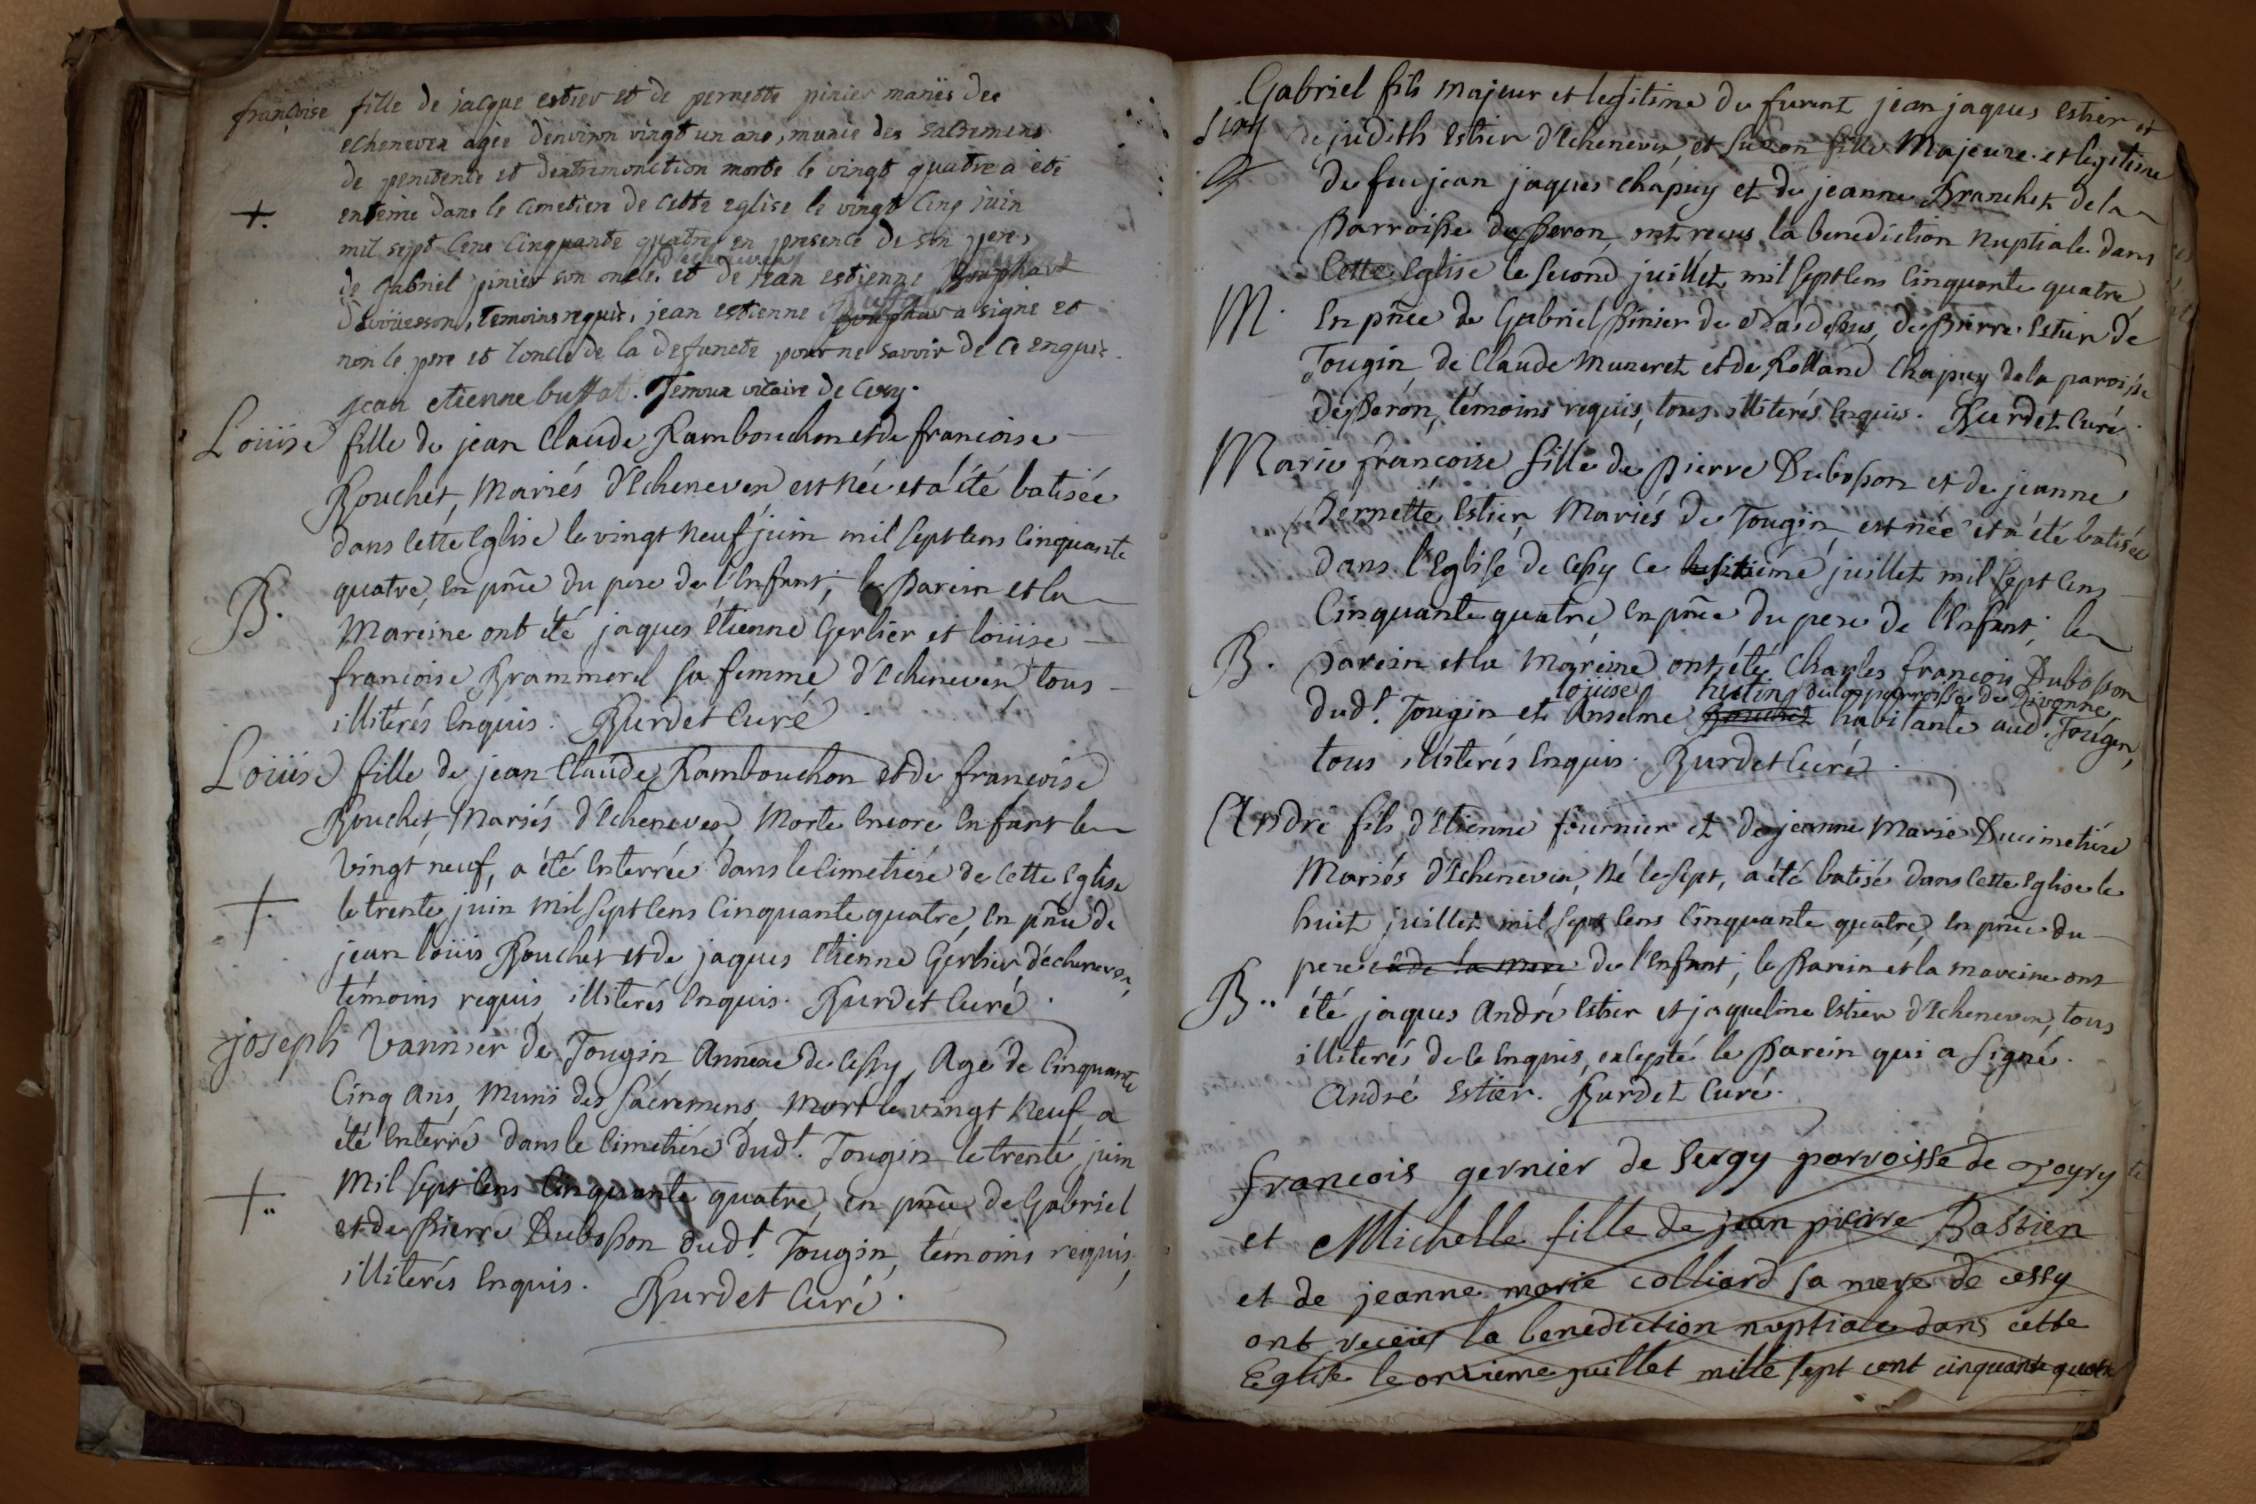 françoise fille de jacque estier et de pernette pinier mariés de
echenevex agée denviron vingt un ans, munie des sacremens
de penitence et dextremonction morte le vingt quatre a été
+. enterrée dans le cimetiere de cette eglise le vingt cinq juin
mil sept cens cinquante quatre en presence de son pere,
de gabriel pinier son oncle, et de jean estienne
temoins requis, jean estienne a signé et
non le pere et loncle de la defuncte pour ne savoir de ce enquis.
jean etienne buffat. vicaire de Cessy.
Loüise fille de jean Claude Rambouchon et de francoise
Bouchet, Mariés d'Echenevex est née et a été batisée
dans cette Eglise le vingt neuf juin mil sept cens cinquante
B. quatre, en pñce du pere de l'Enfant; le Parein et la
Mareine ont été jaques étienne Gerbier et loüise
francoise Brammerel sa femme d'Echenevex, tous
illiterés Enquis. Burdet Curé
Loüise fille de jean Claude Rambouchon et de francoise
Bouchet, Mariés d'Echenevex, Morte Encore Enfant le
vingt neuf, a été Enterrée dans le Cimetiére de Cette Eglise
+. le trente juin mil sept cens Cinquante quatre, En pñce de
jean loüis Bouchet et de jaques Etienne Gerbier d'échenevex,
témoins requis, illiterés Enquis. Burdet Curé.
joseph Vannier de Tougin Annéxe de Cessy, Agé de Cinquante
Cinq Ans, Muni des Sacremens, Mort le vingt Neuf, a
été Enterré dans le Cimetiére dud.t Tougin le trente juin
+.. Mil sept Cens Cinquante quatre, en pñce de Gabriel
et de Pierre Dubosson dud.t Tougin, témoins requis,
illiterés Enquis. Burdet Curé.
Gabriel fils majeur et legitime de furent jean jaques Estier et
de judith Estier d'Echenevex, et Suzon fille Majeure et legitime
de feu jean jaques Chapuy et de jeanne Branchet de la
Parroisse de Peron, ont reçus la benediction Nuptiale dans
Cette Eglise le Second juillet mil sept cens Cinquante quatre
M. En pñce de Gabriel Pinier de de Pierre Estier de
Tougin de Claude Muneret et de Rolland Chapuy de la paroisse
de Peron, témoins requis, tous illiterés Enquis. Burdet Curé.
Marie francoise fille de Pierre Dubosson et de jeanne
Pernette Estier, Mariés de Tougin, est née et a été batisée
dans l'Eglise de Cessy Ce juillet mil sept Cens
Cinquante quatre, en pñce du pere de l'Enfant; le
B. Parein et la Mareine ont été Charles francois Dubosson
loüise hutin de la parroisse de Divonne
dud.t Tougin et Anselme Bouchet habitante aud.t Tougin,
tous illiterés Enquis. Burdet Curé.
André fils d'Etienne fournier et de jeanne Marie Ducimetiére
Mariés d'Echenevex, Né le sept, a été batisé dans Cette Eglise le
huit juillet mil sept Cens Cinquante quatre, En pñce du
pere et de la mere de l'Enfant; le Parein et la mareine ont
B.. été jaques André Estier et jaqueline Estier d'Echenevex, tous
illiterés de Ce Enquis, excepté le Parein qui a Signé.
André Estier. Burdet Curé.
francois gernier de Sergy parroisse de
et Michelle fille de jean pierre Bastien
et de jeanne marie colliard sa mere de cessy
ont receüt la benediction nuptiale dans cette
Eglise le onzieme juillet mille sept cent cinquante quatre